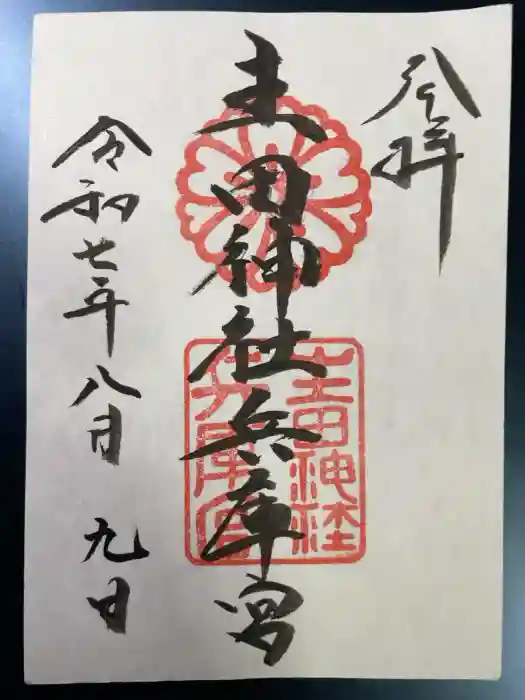 参拝
生田神社兵庫宮
生田神社
兵庫宮
令和七年八月九日